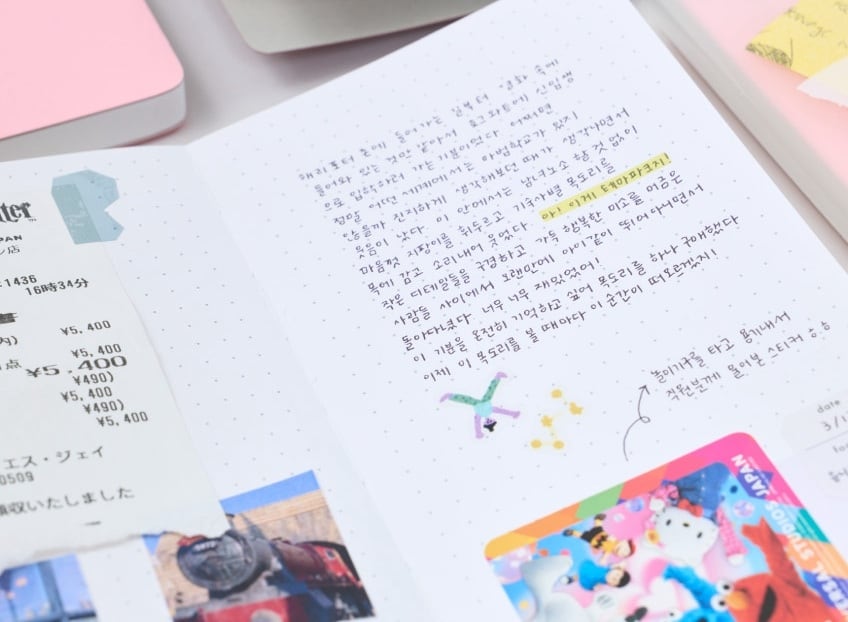 ter
PAN
ン店
1436
16時34分
¥5,400
¥5,400
点 ¥5,400
¥490)
¥5,400
¥490)
¥5,400
エス・ジェイ
0509
領収いたしました
해리포터 존에 들어가는 길부터 영화 속에
들어와 있는 것만 같아서 호그와트에 신입생
으로 입학하러 가는 기분이었다. 어쩌면
정말 어떤 세계에서는 마법학교가 있지
않을까 진지하게 생각해보던 때가 생각나면서
웃음이 났다. 이 안에서는 남녀노소 할 것 없이
마음껏 지팡이를 휘두르고 기숙사별 목도리를
목에 감고 소리내어 웃었다. 아! 이게 테마파크지!
작은 디테일들을 구경하고 가득 행복한 미소를 머금은
사람들 사이에서 오랜만에 아이같이 뛰어다니면서
돌아다녔다. 너무너무 재밌었어!
이 기분을 온전히 기억하고 싶어 목도리를 하나 구매했다
이제 이 목도리를 볼 때마다 이 순간이 떠오르겠지!
놀이기구를 타고 용기내서
직원분께 물어본 스티커 ㅎㅎ
date
3/1
UNIVERSAL STUDIOS JAPAN